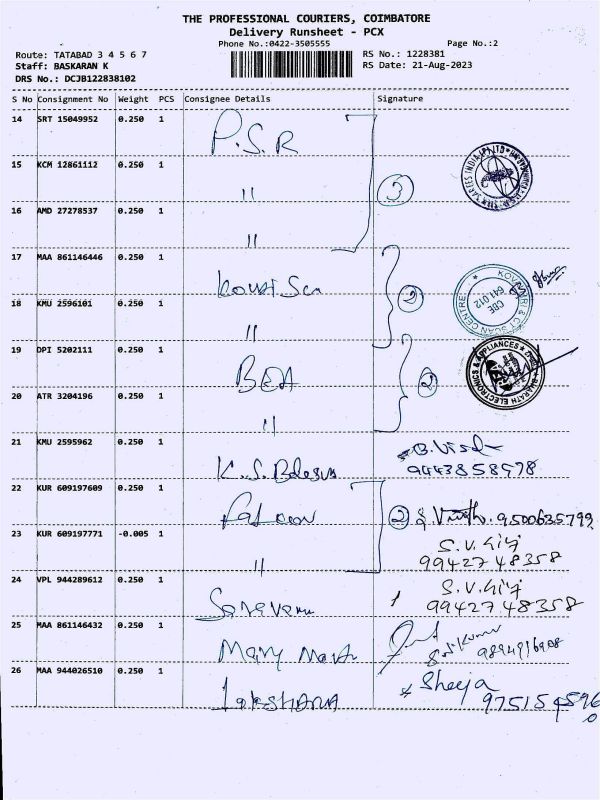 THE PROFESSIONAL COURIERS, COIMBATORE
Delivery Runsheet - PCX
Phone No.:0422-3505555
Page No.:2
Route: TATABAD 3 4 5 6 7
RS No.: 1228381
Staff: BASKARAN K
RS Date: 21-Aug-2023
DRS No.: DCJB122838102
S No Consignment No Weight PCS Consignee Details Signature
14 SRT 15049952 0.250 1 P.S.R
15 KCM 12861112 0.250 1 " 3
16 AMD 27278537 0.250 1 "
17 MAA 861146446 0.250 1
KOVAI SCAN CENTRE CBE 641 012
18 KMU 2596101 0.250 1 " 2
19 DPI 5202111 0.250 1 BEA 2
BHARATH ELECTRONICS & APPLIANCES
20 ATR 3204196 0.250 1 "
21 KMU 2595962 0.250 1 K.S. B.
9443858978
22 KUR 609197609 0.250 1 Falcon 2 9500635799
23 KUR 609197771 -0.005 1 " S.V. Giri
9942748358
24 VPL 944289612 0.250 1 S.V. Giri
9942748358
25 MAA 861146432 0.250 1 Mary
26 MAA 944026510 0.250 1 Sheeja